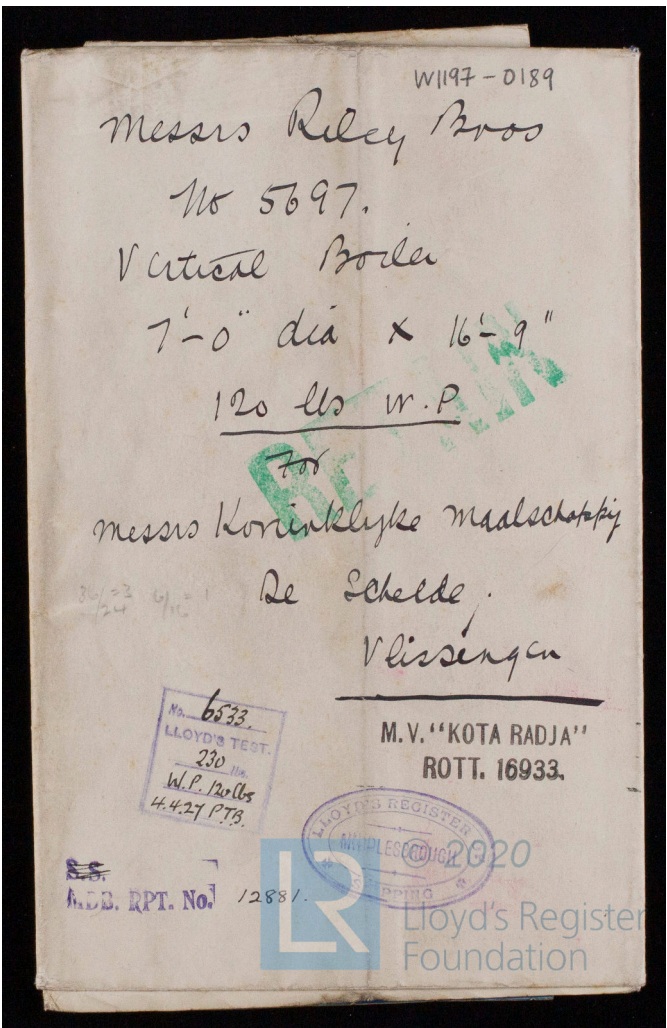 W1197-0189
Messrs Riley Bros
No 5697.
Vertical Boiler
7'-0" dia x 16'-9"
120 lbs W.P
RETAIN
For
Messrs Koninklyke Maalschappij
De Schelde.
Vlissingen
No. 6533.
LLOYD'S TEST.
230 lbs.
W.P. 120 lbs
4.4.27 PTB.
M.V. "KOTA RADJA"
ROTT. 16933.
LLOYD'S REGISTER
MIDDLESBOROUGH
SHIPPING
S.S.
MDB. RPT. No. 12881.
LR
© 2020
Lloyd's Register
Foundation